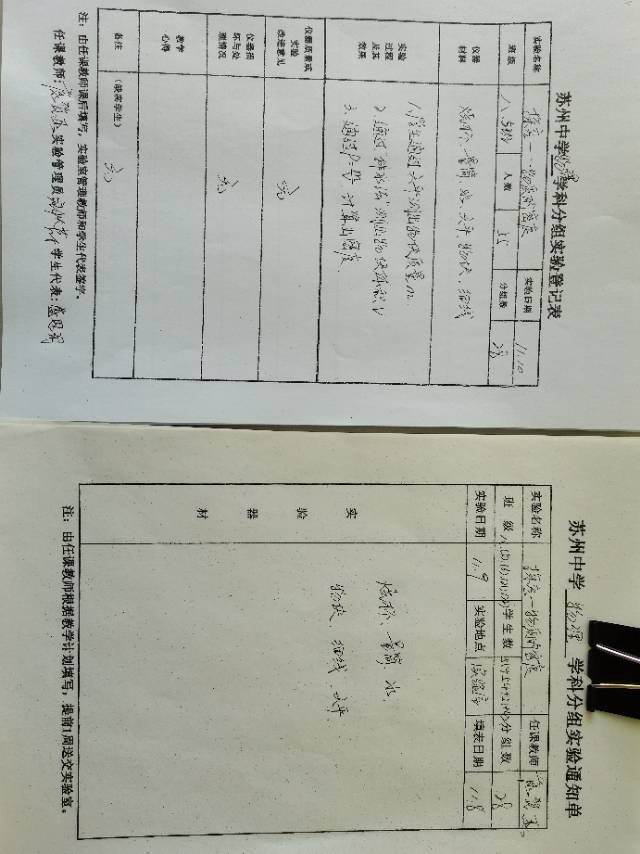 苏州中学物理学科分组实验登记表
实验名称 探究——物质的密度 实验日期 11.10
班级 人数 55 分组数 28
仪器材料 烧杯、量筒、水、天平、物块、细线
实验过程及其效果
1、学生通过天平测出物块质量m
2、通过排水法测出物块体积V
3、通过 计算出密度
仪器质量或实验改进意见 无
仪器损坏与处理情况 无
教学心得
备注 (缺席学生) 无
注：由任课教师课后填写，实验室管理教师和学生代表签字。
任课教师： 实验管理员 学生代表：
苏州中学 物理 学科分组实验通知单
实验名称 探究—物质的密度 任课教师
班级 学生数 分组数 28
实验日期 11.9 实验地点 实验室 填表日期 11.8
实验器材
烧杯、量筒、水、
物块、细线、天平
注：由任课教师根据教学计划填写，提前1周送交实验室。